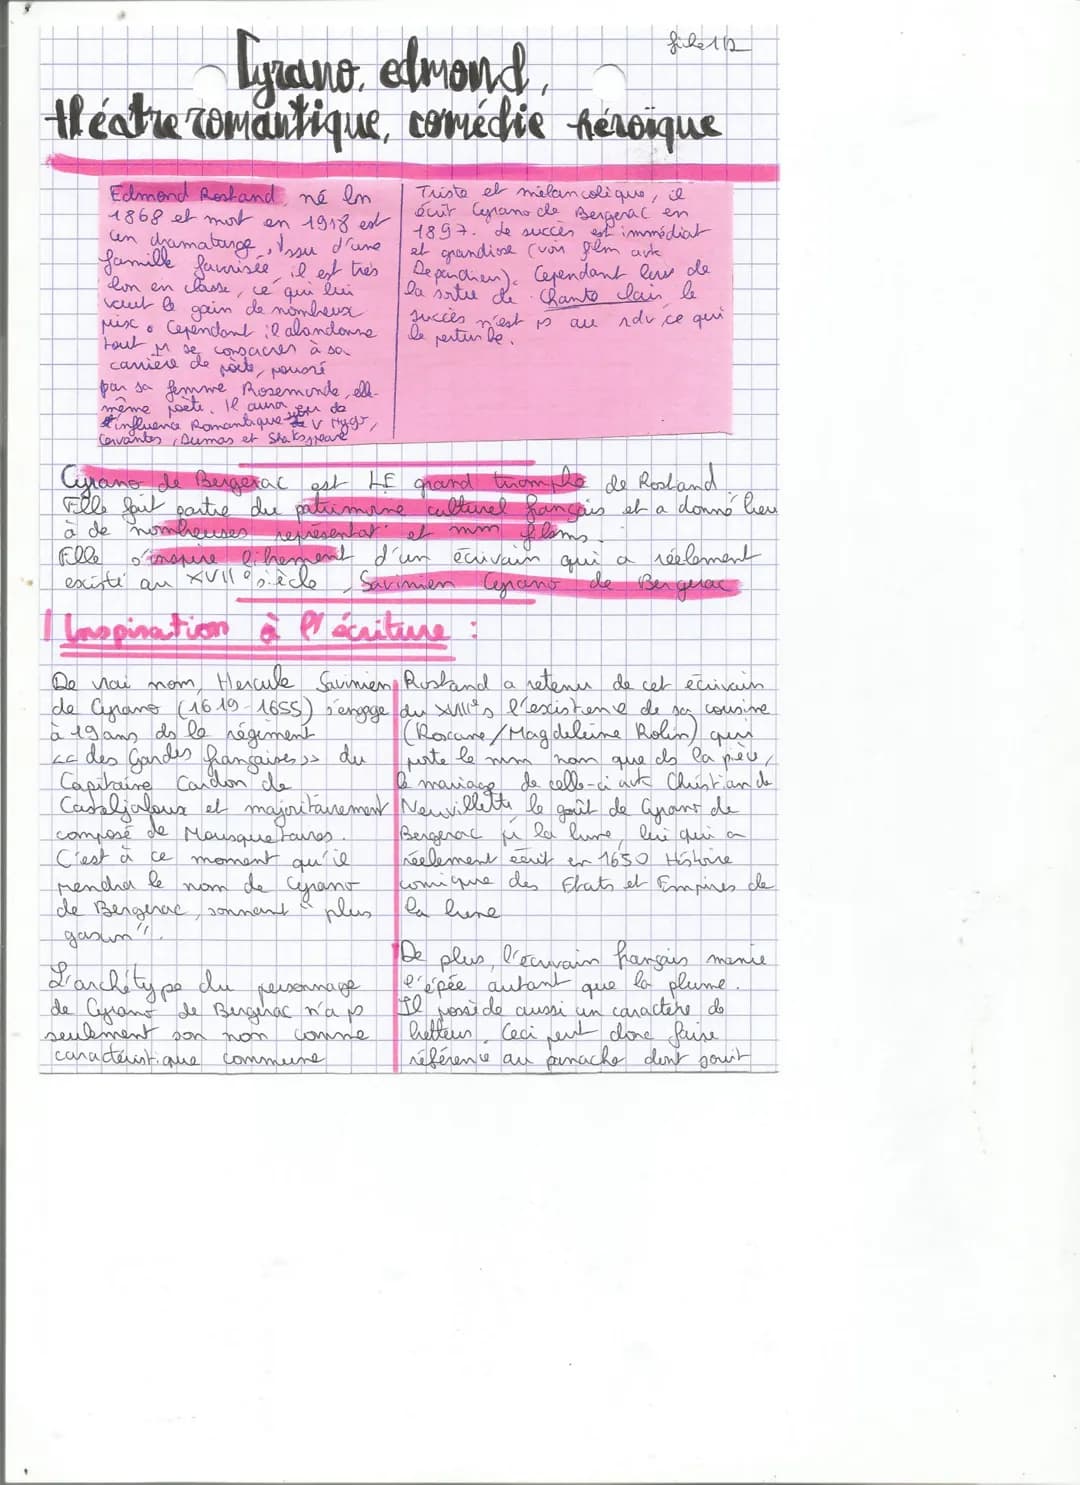 fiche 1/2
Cyrano, edmond,
théâtre romantique, comédie héroïque
Edmond Rostand, né en
1868 et mort en 1918 est
un dramaturge, issu d'une
famille favorisée, il est très
bon en classe, ce qui lui
vaut le gain de nombreux
prix. Cependant il abandonne
tout pr se consacrer à sa
carrière de poète, poussé
par sa femme Rosemonde, elle-
même poète. Il aura eu de
l'influence Romantique V Hugo,
Cervantes, Dumas et Shakspeare
Triste et mélancolique, il
écrit Cyrano de Bergerac en
1897. Le succès est immédiat
et grandiose (voir film avk
Depardieu). Cependant lors de
la sortie de Chanteclair, le
succès n'est ps au rdv, ce qui
le perturbe.
Cyrano de Bergerac est LE grand triomphe de Rostand
Elle fait partie du patrimoine culturel français et a donné lieu
à de nombreuses représentat° et mm films.
Elle s'inspire librement d'un écrivain qui a réelement
existé au XVII° siècle, Savinien Cyrano de Bergerac
I Inspiration à l'écriture :
De vrai nom, Hercule Savinien
de Cyrano (1619-1655) s'engage
à 19 ans ds le régiment
<< des Gardes françaises >> du
Capitaine Cardon de
Casteljaloux et majoritairement
composé de Mousquetaires.
C'est à ce moment qu'il
prendra le nom de Cyrano
de Bergerac, sonnant "plus
gascon".
L'archétype du personnage
de Cyrano de Bergerac n'a ps
seulement son nom comme
caractéristique commune
Rostand a retenu de cet écrivain
du XVIIe s l'existence de sa cousine
(Roxane/Magdeleine Robin) qui
porte le mm nom que ds la pièce,
le mariage de celle-ci avk Christian de
Neuvillette le goût de Cyrano de
Bergerac pr la lune, lui qui a
réelement écrit en 1650 Histoire
comique des Etats et Empires de
la lune
De plus, l'écrivain français manie
l'épée autant que la plume.
Il possède aussi un caractère de
bretteur. Ceci peut donc faire
référence au panache dont jouit